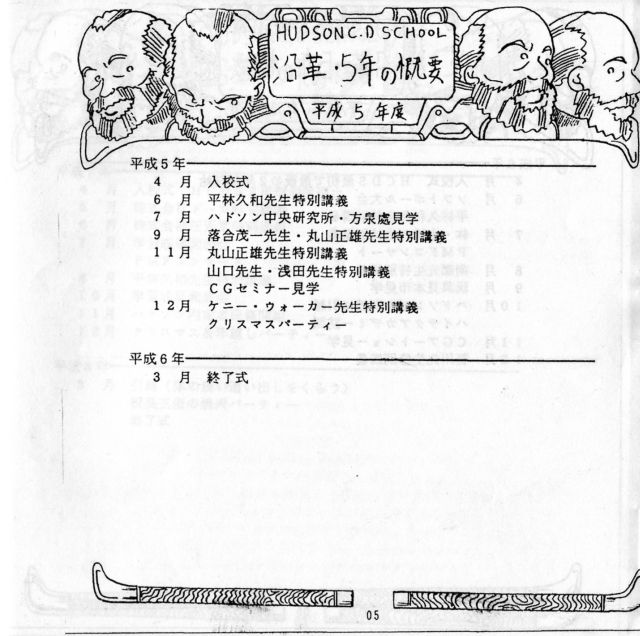 HUDSON C.D SCHOOL
沿革・5年の概要
平成 5 年度
平成5年
4 月 入校式
6 月 平林久和先生特別講義
7 月 ハドソン中央研究所・方泉處見学
9 月 落合茂一先生・丸山正雄先生特別講義
11月 丸山正雄先生特別講義
山口先生・浅田先生特別講義
CGセミナー見学
12月 ケニー・ウォーカー先生特別講義
クリスマスパーティー
平成6年
3 月 終了式
05